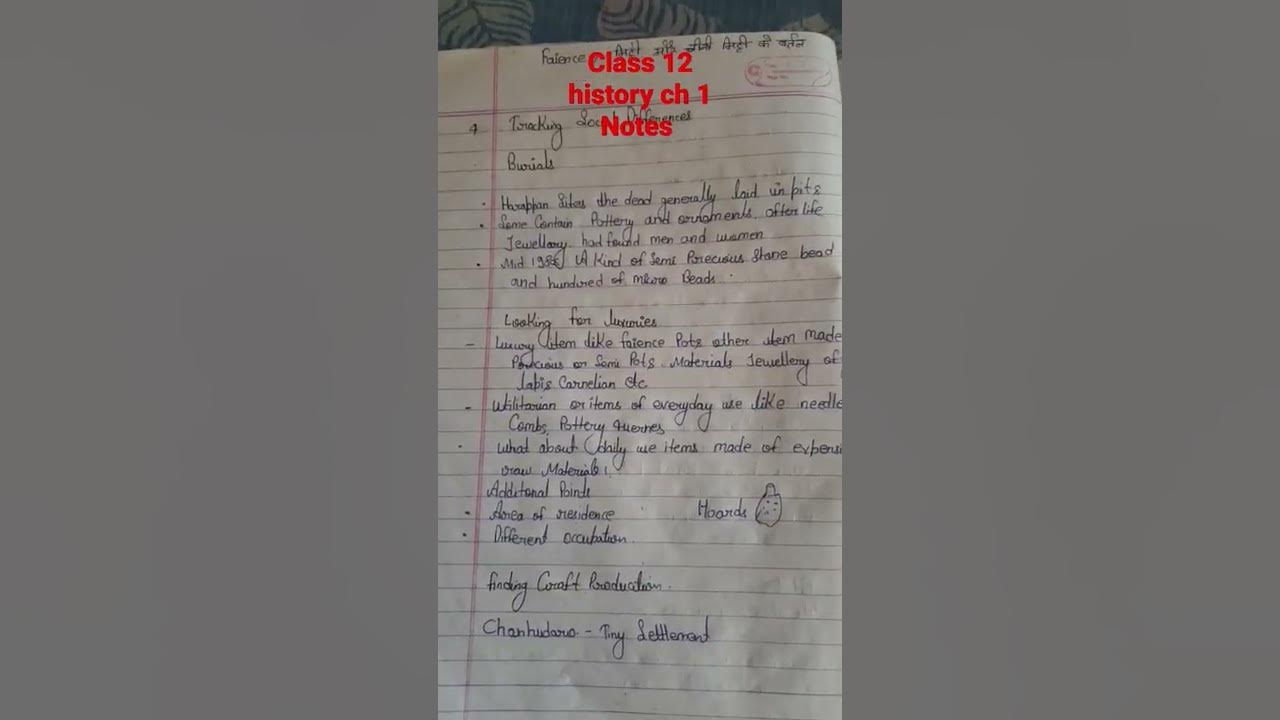 Faience मिट्टी और चीनी मिट्टी के बर्तन
Class 12
history ch 1
Notes
4 Tracking Social Differences
Burials
· Harappan Sites the dead generally laid in pits
· Some Contain Pottery and ornaments, after life
Jewellery had found men and women
· Mid 1980s A Kind of Semi Precious Stone bead
and hundred of micro Beads.
Looking for luxuries
- Luxury item like faience Pots other item made
Precious or Semi Pots Materials Jewellery of
labis Carnelian etc
- Utilitarian or items of everyday use like needle
Combs, Pottery quernes
· What about daily use items made of expensi
raw Materials
Additonal Points
· Area of residence Hoards
· Different occupation.
finding Craft Production.
Chanhudaro - Tiny Settlement